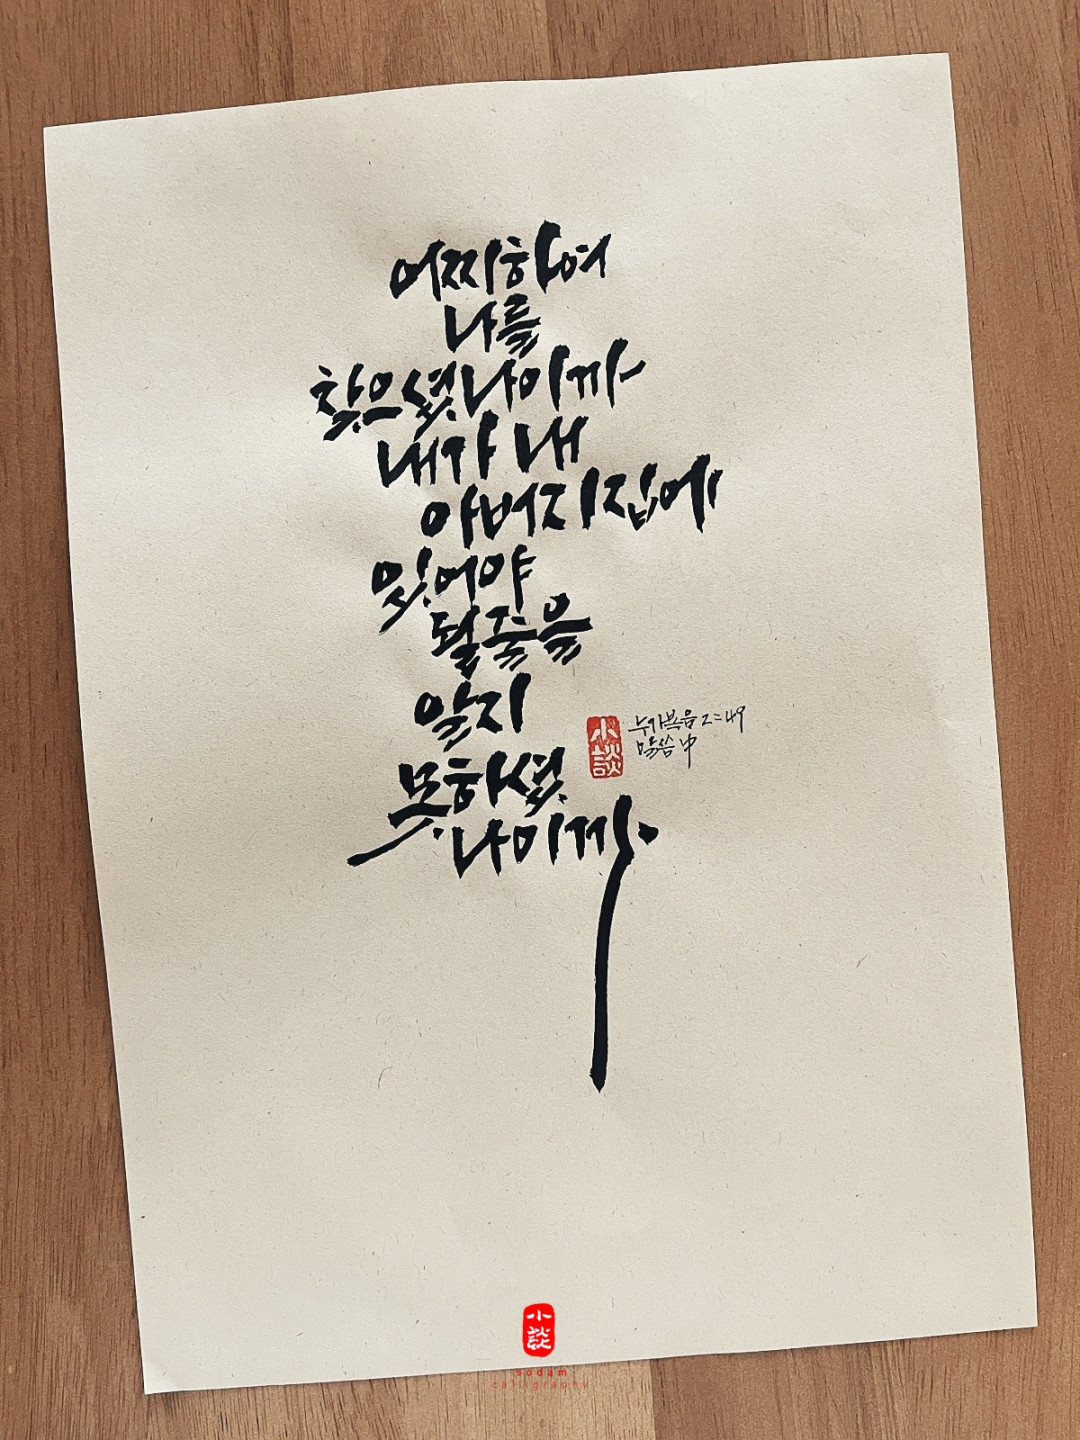 어찌하여
나를
찾으셨나이까
내가 내
아버지집에
있어야
될줄을
알지
못하셨
나이까.
小談
누가복음 2:49
말씀 中
小談
sodam
calligraphy